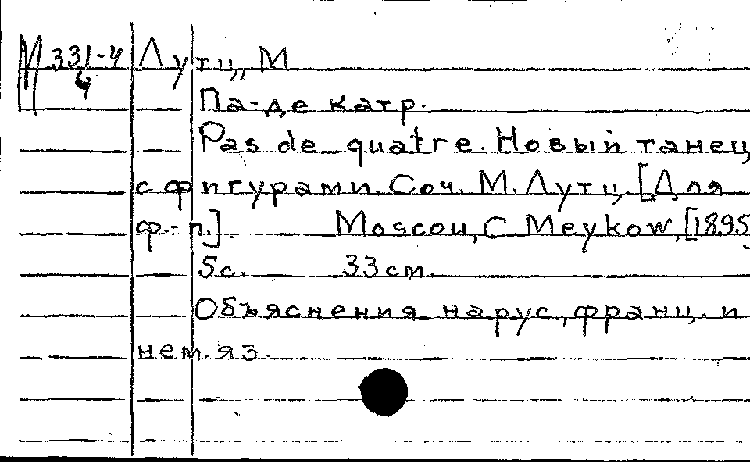 М 331-4 Лутц, М
4
Па-де катр.
Pas de quatre. Новый танец
с фигурами. Соч. М. Лутц. [Для
ф.-п.] Moscou, C. Meykow, [1895]
5с. 33 см.
Объяснения на рус., франц. и
нем. яз.